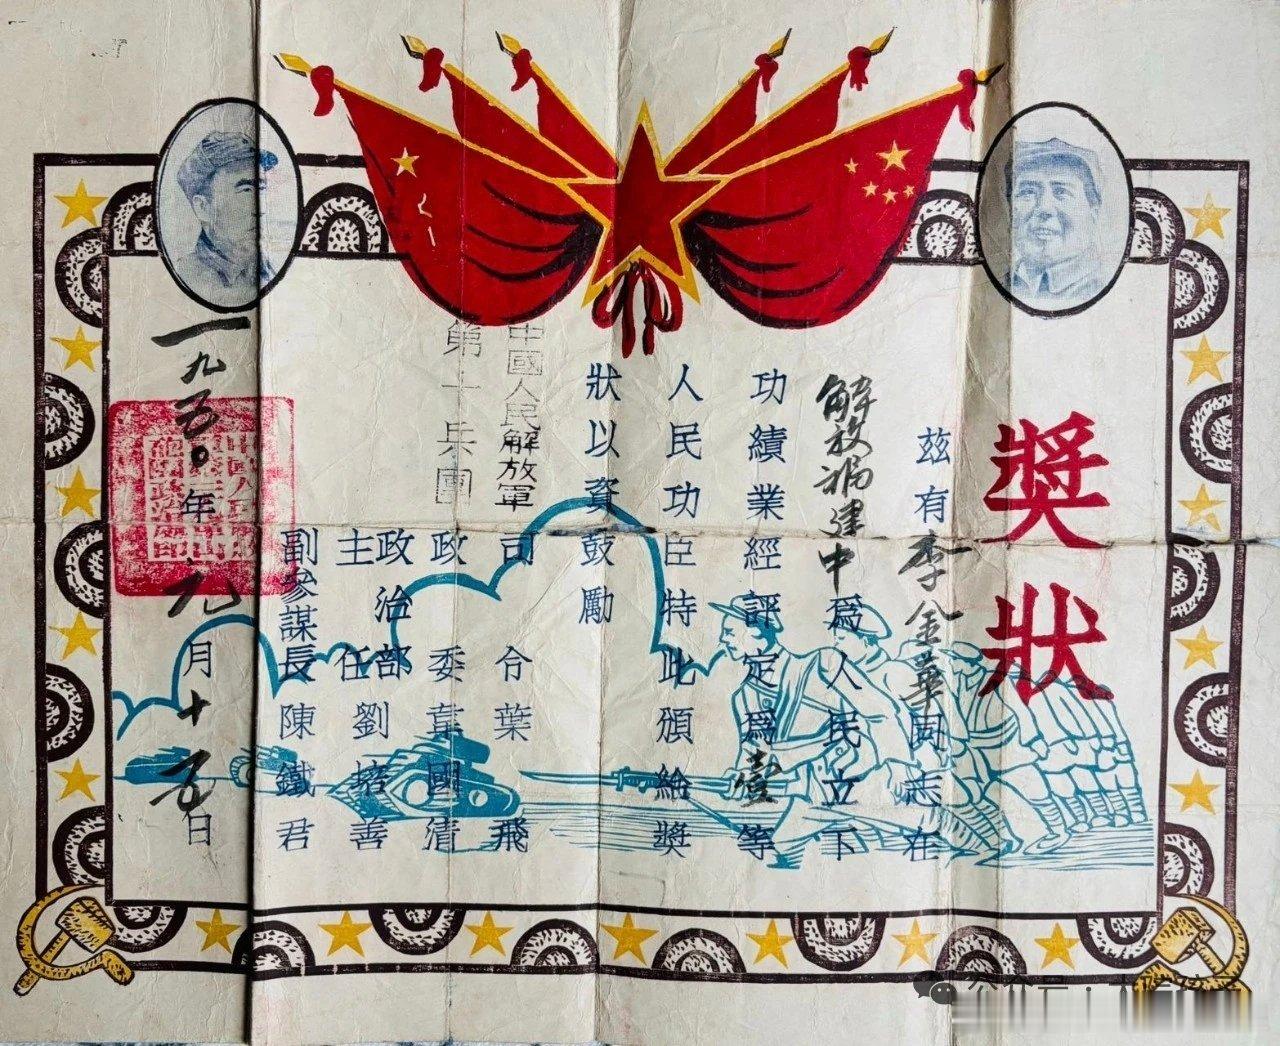 獎狀
茲有李金華同志在
解放福建中為人民立下
功績業經評定為壹等
人民功臣特此頒給獎
狀以資鼓勵
中國人民解放軍
第十兵團
司令葉飛
政委韋國清
政治部
主任劉培善
副參謀長陳鐵君
一九五〇年元月十五日
八一